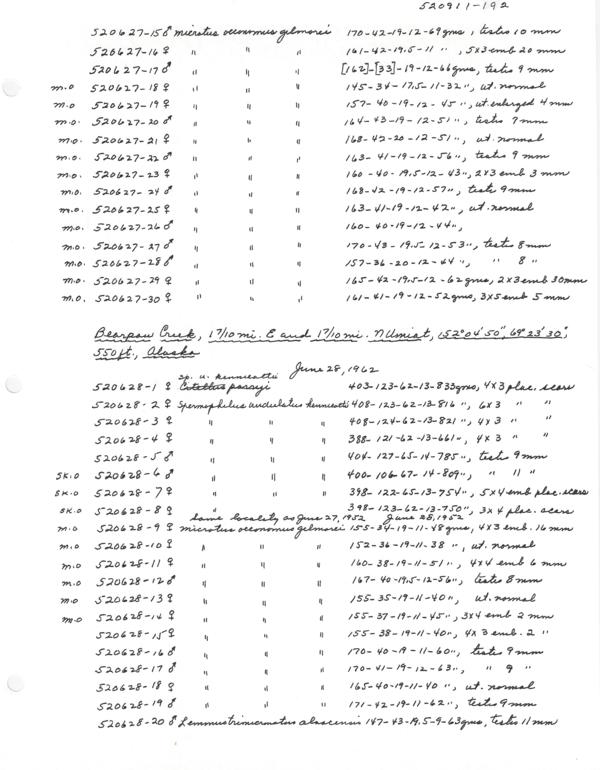 520911-192
520627-15♂ microtus oeconomus gilmorei 170-42-19-12-69gms, testes 10 mm
520627-16♀ " " " 161-42-19.5-11 ", 5x3 emb 20 mm
520627-17♂ " " " [162]-[33]-19-12-66gms, testes 9 mm
m.o 520627-18♀ " " " 145-34-17.5-11-32", ut. normal
m.o 520627-19♀ " " " 157-40-19-12-45", ut. enlarged 4 mm
m.o. 520627-20♂ " " " 164-43-19-12-51", testes 7 mm
m.o. 520627-21♀ " " " 168-42-20-12-51", ut. normal
m.o. 520627-22♂ " " " 163-41-19-12-56", testes 9 mm
m.o. 520627-23♀ " " " 160-40-19.5-12-43", 2x3 emb 3 mm
m.o. 520627-24♂ " " " 168-42-19-12-57", testes 9mm
m.o. 520627-25♀ " " " 163-41-19-12-42", ut. normal
m.o. 520627-26♂ " " " 160-40-19-12-44",
m.o. 520627-27♂ " " " 170-43-19.5-12-53", testes 8mm
m.o. 520627-28♂ " " " 157-36-20-12-44", " 8 "
m.o. 520627-29♀ " " " 165-42-19.5-12-62gms, 2x3 emb 30mm
m.o. 520627-30♀ " " " 161-41-19-12-52gms, 3x5 emb 5 mm
Bearpaw Creek, 17/10 mi. E and 17/10 mi. N Umiat, 152°04'50", 69°23'30",
550 ft., Alaska
June 28, 1962
sp. u. kennicottii
520628-1♀ Citellus parryi 403-123-62-13-833gms, 4x3 plac. scars
520628-2♀ Spermophilus undulatus kennicotti 408-123-62-13-816", 6x3 " "
520628-3♀ " " " 408-124-62-13-821", 4x3 " "
520628-4♀ " " " 388-121-62-13-661", 4x3 " "
520628-5♂ " " " 404-127-65-14-785", testes 9mm
SK.O 520628-6♂ " " " 400-106-67-14-809", " 11 "
SK.O 520628-7♀ " " " 398-122-65-13-754", 5x4 emb plac. scars
SK.O 520628-8♀ " " " 398-123-62-13-750", 3x4 plac. scars
Same locality as June 27, 1952 June 28, 1952
m.o 520628-9♀ microtus oeconomus gilmorei 155-34-19-11-48gms, 4x3 emb. 16 mm
m.o 520628-10♀ " " " 152-36-19-11-38 ", ut. normal
m.o 520628-11♀ " " " 160-38-19-11-51", 4x4 emb 6 mm
m.o 520628-12♂ " " " 167-40-19.5-12-56", testes 8mm
m.o 520628-13♀ " " " 155-35-19-11-40", ut. normal
m.o 520628-14♀ " " " 155-37-19-11-45", 3x4 emb 2 mm
520628-15♀ " " " 155-38-19-11-40", 4x3 emb. 2 "
520628-16♂ " " " 170-40-19-11-60", testes 9mm
520628-17♂ " " " 170-41-19-12-63", " 9 "
520628-18♀ " " " 165-40-19-11-40 ", ut. normal
520628-19♂ " " " 171-42-19-11-62", testes 9mm
520628-20♂ Lemmus trimucronatus alascensis 147-43-19.5-9-63gms, testes 11mm